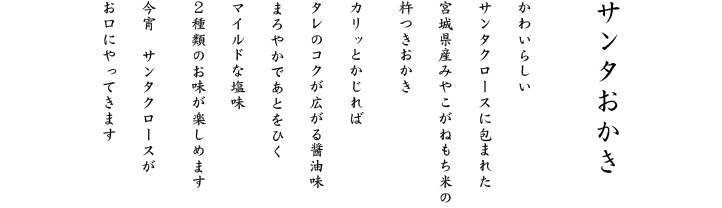 サンタおかき
かわいらしい
サンタクロースに包まれた
宮城県産みやこがねもち米の
杵つきおかき
カリッとかじれば
タレのコクが広がる醤油味
まろやかであとをひく
マイルドな塩味
２種類のお味が楽しめます
今宵　サンタクロースが
お口にやってきます